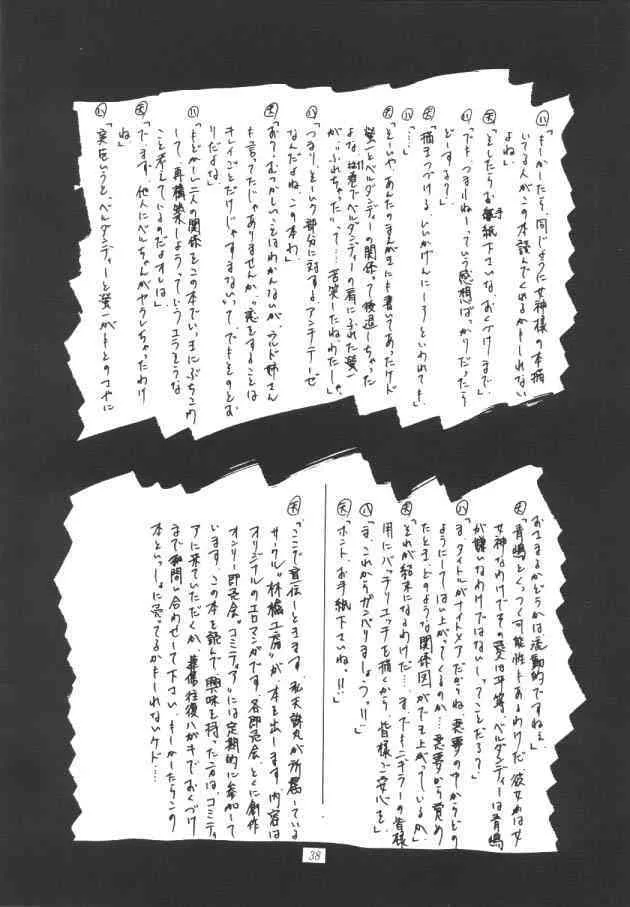 ㋩「もしかしたら、同じように女神様の本描
いてる人がこの本読んでくれるかもしれない
よね」
㋶「としたらお手紙下さいな、おくづけまで」
㋩「でも、つまんねーっていう感想ばっかりだったら
どーする?」
㋶「描きつづける、いいかげんにしろといわれても」
㋩「…」
㋶「どーいや、あんたのまんがまにも書いてあったけど
螢一とベルダンディーの関係って後退しちゃった
よな、は巻でベルダンディーの肩にふれた螢一
が"ふれちゃった"って…苦笑したねわたしゃ」
㋩「つまり、そーいう部分に対するアンチテーゼ
なんだよね、この本わ」
㋶「おう、むっかしいことはわかんないが、ウルド姉さん
も言ってたじゃありませんか、"恋をすることは
キレイごとだけじゃすまない"って、でもそのとお
りだよな」
㋩「もどかしい二人の関係をこの本でいっきにぶちこわ
して、再構築しようっていうエラそうな
こと考えているのだよオレは」
㋶「でも、他人にベルちゃんがヤラレちゃったわけ
ね」
㋩「実をいうと、ベルダンディーと螢一がもとのさやに
おさまるかどうかは流動的ですねぇ」
㋶「青嶋とくっつく可能性もあるわけだ、彼女わは女
女神なわけでその愛は平等、ベルダンディーは青嶋
が嫌いなわけではないしってことだろ?」
㋩「ま、タイトルがナイトメアだからね、悪夢の中からどの
ようにしてはい上がってくるのか…悪夢から覚め
たとき、どのような関係図ができ上がっているか」
㋶「それが結末になるわけだ…、まぁでもニギラーの皆様
用にバッチリエッチを描くから、皆様ご安心を」
㋩「ま、これからガンバりましょう!!」
㋶「ホント、お手紙下さいね!!」
㋶「ここで宣伝しときます、私天誅丸が所属している
サークル"林檎工房"が本を出します、内容は
オリジナルのエロマンガです、各即売会、とくに創作
オンリー即売会"コミティア"には定期的に参加して
います、この本を読んで興味を持った方は、コミティ
アに来ていただくか、葉書往復ハガキでおくづけ
まで、お問い合わせして下さい、もしかしたらこの
本といっしょに売ってるかもしれないケド…
38